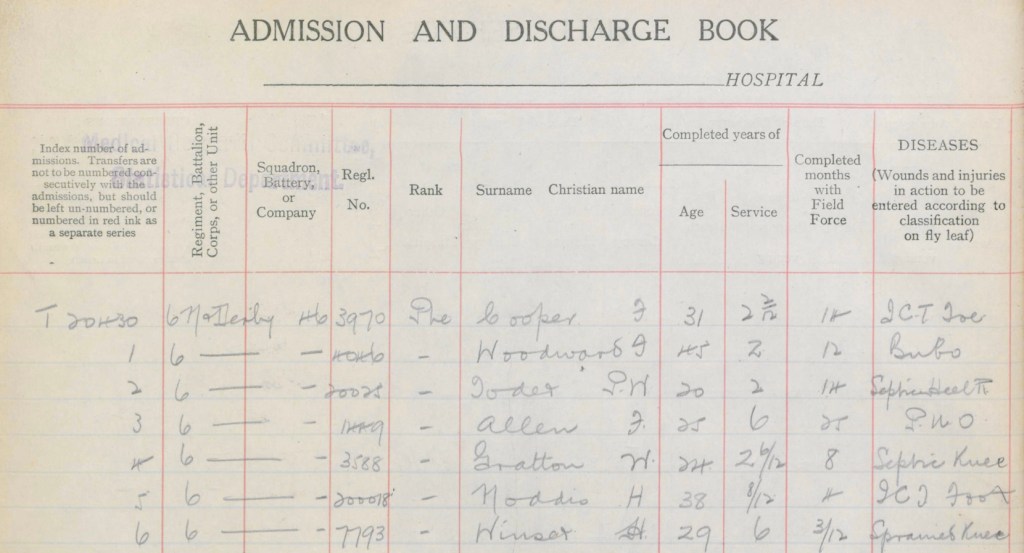 ADMISSION AND DISCHARGE BOOK
HOSPITAL
Index number of admissions. Transfers are not to be numbered consecutively with the admissions, but should be left un-numbered, or numbered in red ink as a separate series
Regiment, Battalion, Corps, or other Unit
Squadron, Battery, or Company
Regl. No.
Rank
Surname Christian name
Completed years of
Age Service
Completed months with Field Force
DISEASES (Wounds and injuries in action to be entered according to classification on fly leaf)
T 20430 6 N & Derby 3970 Pte Cooper F 31 2 2/12 14 ICT Toe
1 6 — - 4046 - Woodward F 45 2 12 Bubo
2 6 — - 20025 - P.W 20 2 14 Septic Heel
3 6 — - 1449 - Allen F. 25 6 25 P.U.O
4 6 — - 3588 - Gratton W. 24 2 6/12 8 Septic Knee
5 6 — - 200018 - Noddis H 38 8/12 4 ICT Foot
6 6 — - 7793 - H. 29 6 3/12 Sprained Knee